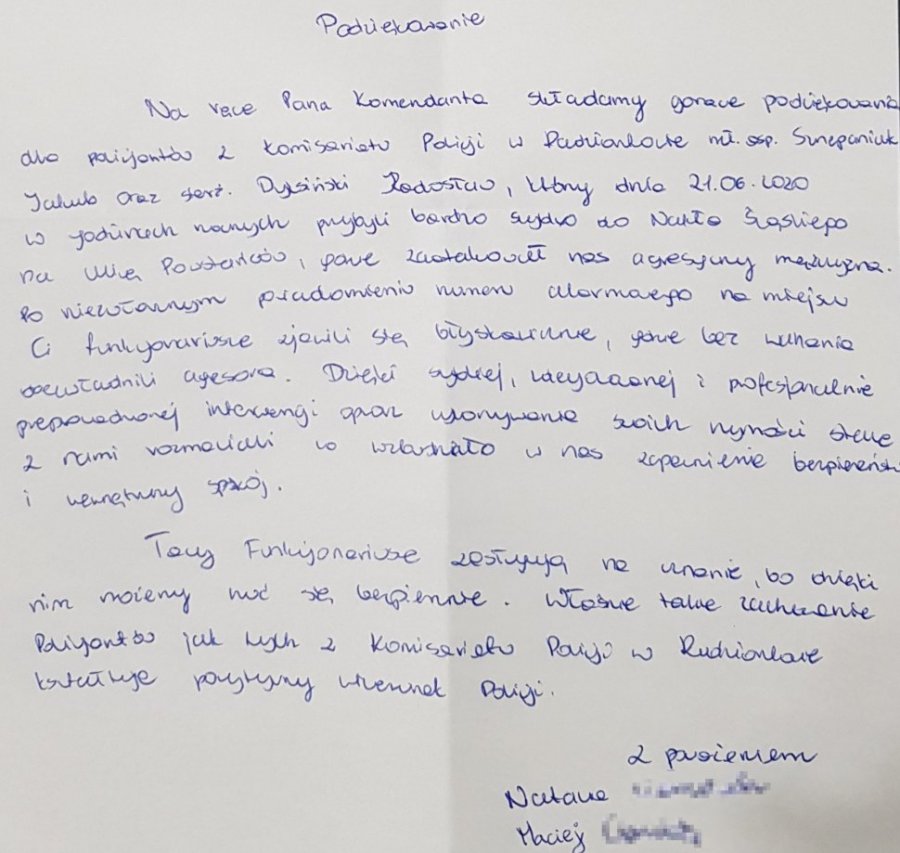 Podziękowanie
Na ręce Pana Komendanta składamy gorące podziękowania
dla policjantów z Komisariatu Policji w Radzionkowie mł. asp. Szczepaniuk
Jakub oraz sierż. Dyksiński Radosław, którzy dnia 21.06.2020
w godzinach nocnych przybyli bardzo szybko do Nakło Śląskiego
na ulicę Powstańców, gdzie zaatakował nas agresywny mężczyzna.
Po niezwłocznym numeru alarmowego na miejsce
Ci funkcjonariusze zjawili się błyskawicznie, gdzie bez wahania
obezwładnili agresora. Dzięki szybkiej, i profesjonalnie
przeprowadzonej interwencji oraz wykonywania swoich czynności stale
z nami rozmawiali co wzbudzało w nas zapewnienie
i wewnętrzny spokój.
Tacy Funkcjonariusze zasługują na uznanie, bo dzięki
nim możemy czuć się bezpiecznie. Właśnie takie zachowanie
Policjantów jak tych z Komisariatu Policji w Radzionkowie
kształtuje pozytywny wizerunek Policji.
Z poważaniem
Natalia
Maciej